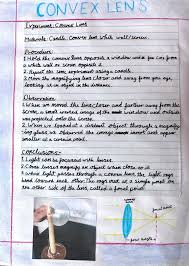 CONVEX LENS
Experiment: Convex Lens
Materials: Candle, Convex lens, white wall/screen.
Procedure:
1. Hold the convex lens opposit a window and far from
a white wall or screen opposite it.
2. Repeat the same experiment using a candle.
3. Move the magnifying lens closer and away from your eye,
looking at an object in the distance.
Observation:
1. When we moved the lens closer and further away from the
screen, a small inverted image of the window and outside
was projected onto the screen.
2. When we looked at a distant object through a magnify-
ing glass we observed the image smaller
at a certain point.
Conclusions:
1. Light can be focused with lenses.
2. Convex lenses magnify an object when close up it
3. When light passes through a convex lens, the light rays
bend toward each other. The rays meet at a single point on
the other side of the lens, called a focal point.
focal point
focal length